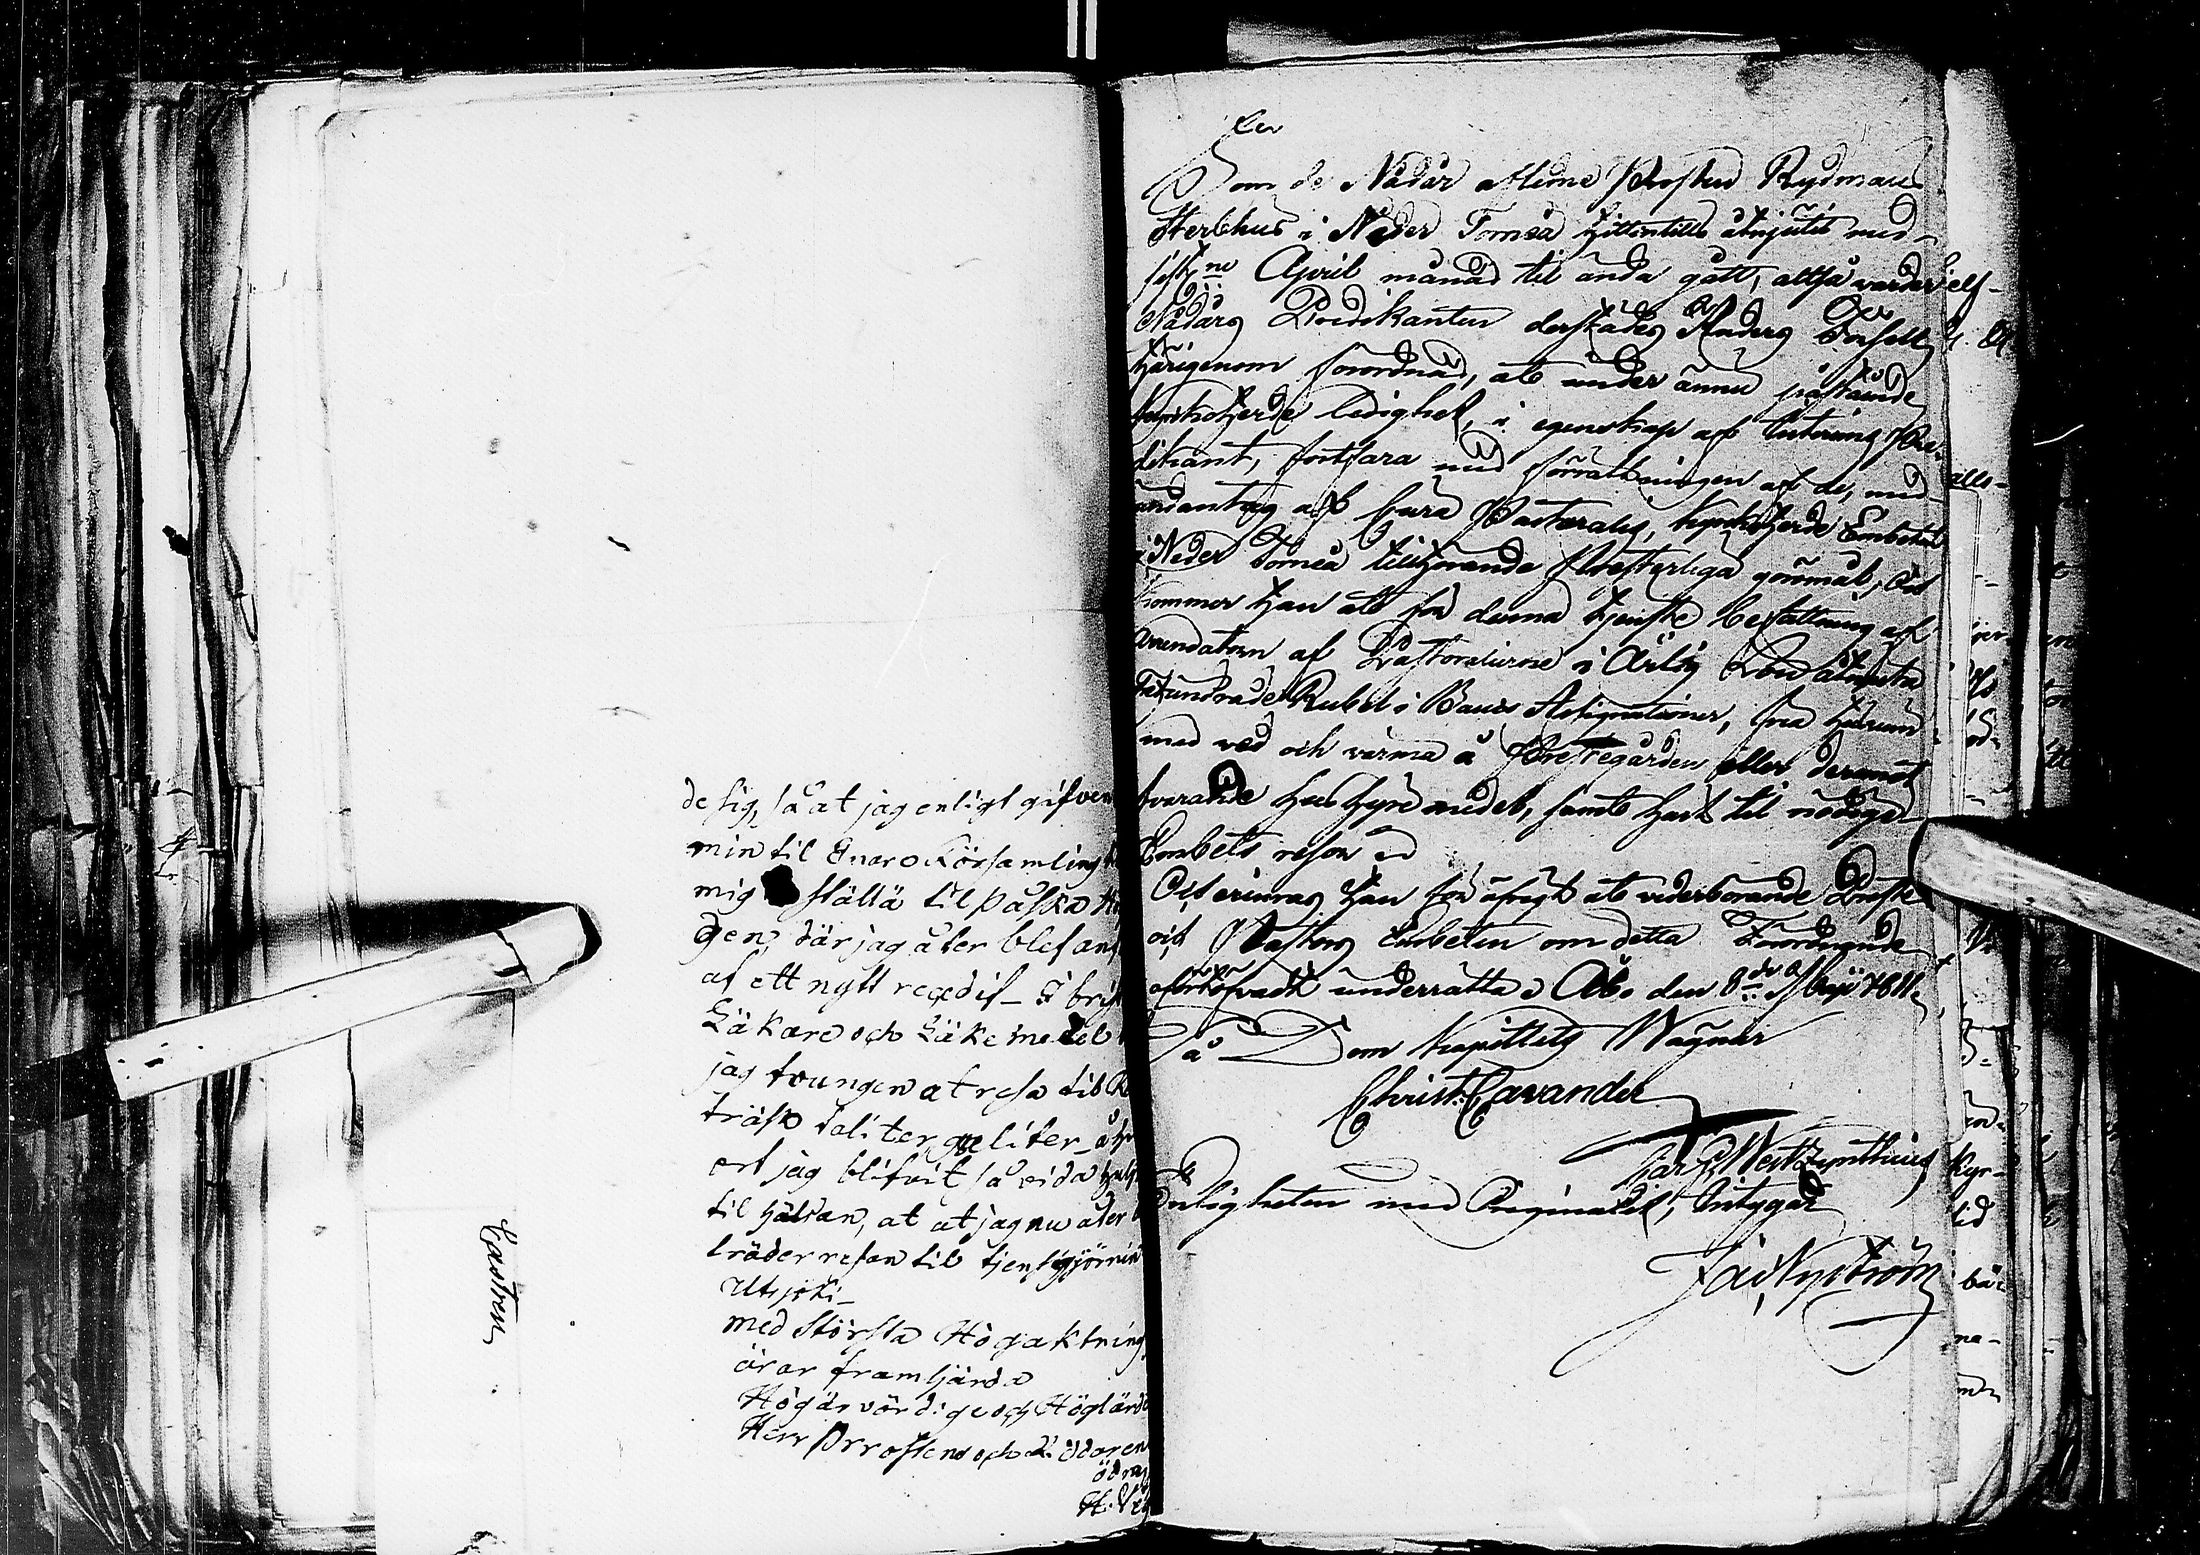 de sig, så at jag enligt gifven
min til Enare Församling
mig ställa til Påska
gen, där jag åter blef an
af ett nytt recedif_ I brist
Läkare och Läke medel
jag tvungen at resa til K
träsk taliter qualiter_ åter
ort jag blifvit så vida
til hälsan, at at jag nu åter
träder resan til tjenstgjörnin
Utsjoki_
med största Högaktning
ärar framhärda
Högärvördige och Höglärde
Herr Prrostens och Riddaren
ödmj
H. W
Castren
Som de Nådår aflidne Prosten Rydmans
Sterbhus i Neder Torneå hittentills åtnjutit med
sistne April månad til ända gått, altså varder
Nådårs Predikanten derstädes Anders Forsell
härigenom förordnad, at under ännu påstående
kyrkoherde ledighet, i egenskap af Interims Pre-
dikant, fortfara med förrättningen af de, med
undantag af Cura Pastoralis, kyrkoherde Embetet
i Neder Torneå tillhörande Presterliga göromål; Och
kommer han at för denna tjenste befattning af
Arrendatorn af Pastoralierne i Årlig Lön åtnjuta
Hundrade Rubel i Banco Assignationer, fria husrum
med ved och värma å Prestegården eller deremot
svarande hushyre medel, samt häst til nödiga
Embets resor
Och erinras han för öfrigt at vederbörande Prost
och Pastors Embeten om detta Förordnande
oförtöfvadt underrätta. Åbo den 8de Maji 1811.
På Dom Kapitlets Wägnar
Christ. Cavander
Jac. Westzynthius
Enligheten med Originalet, Intygar
Jac. Nyström